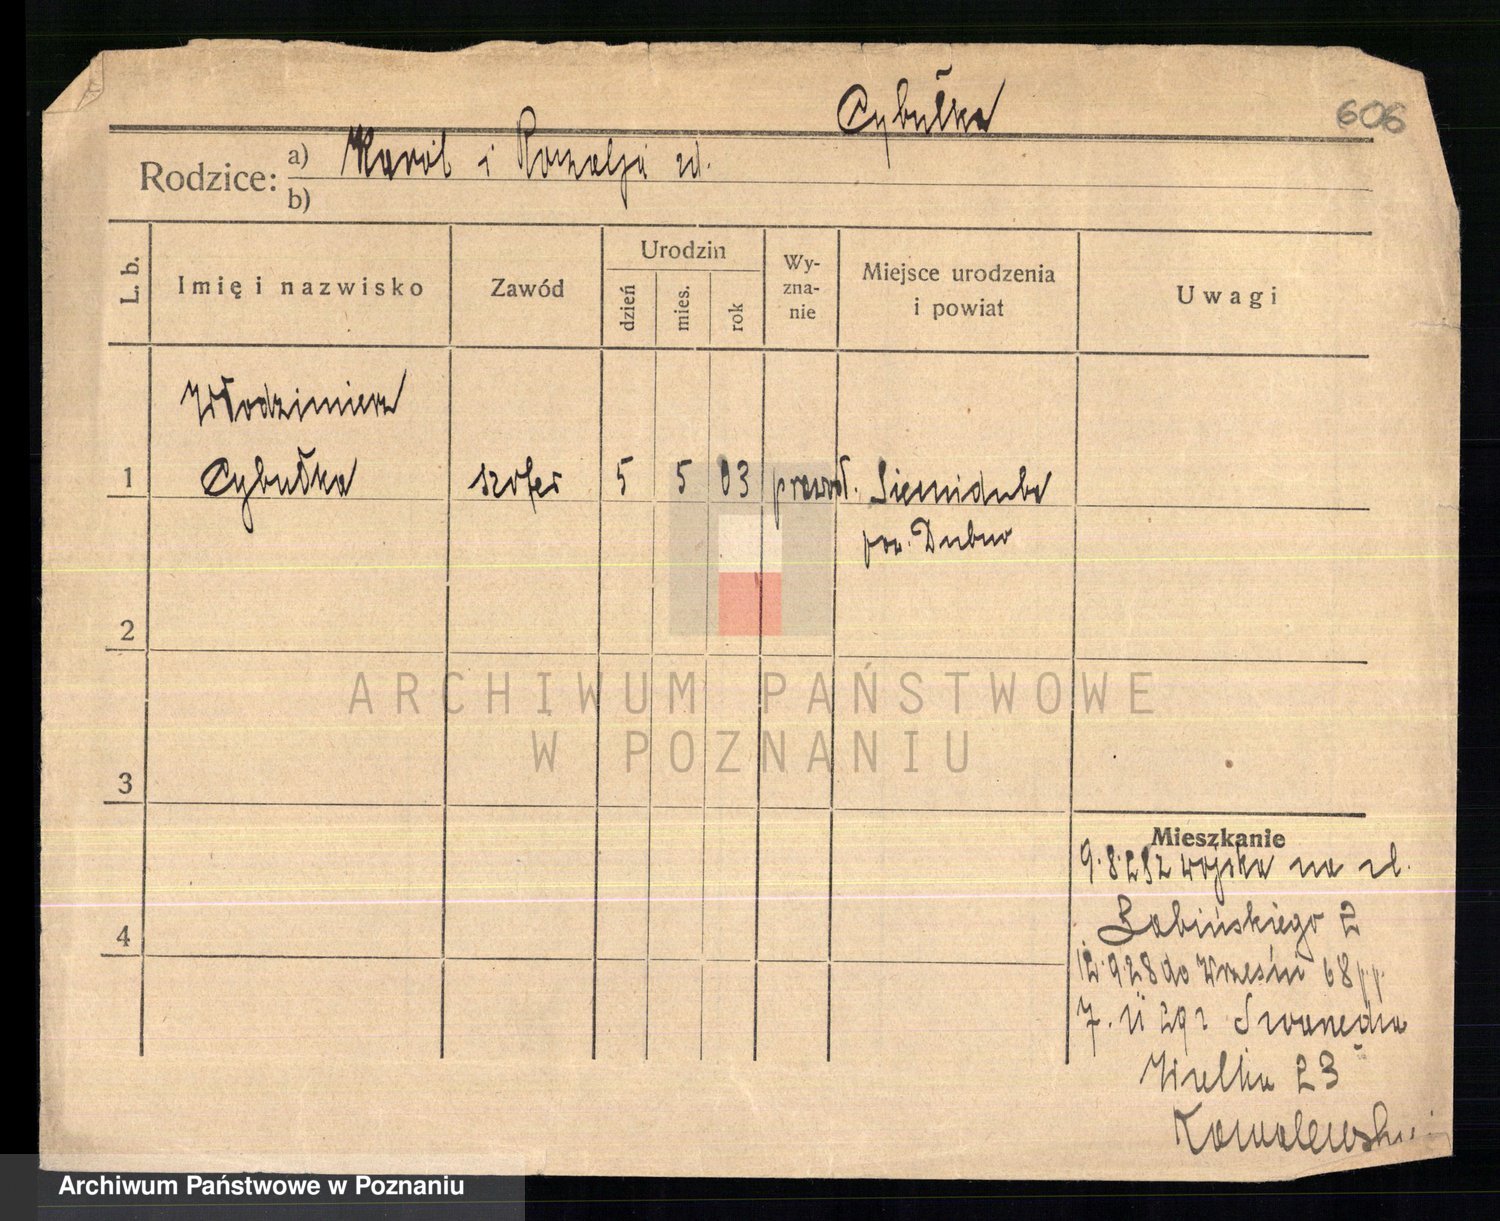 Cybulka
606
Rodzice: a) Karol i Rozalja zd.
b)
L. b.
Imię i nazwisko
Zawód
Urodzin
dzień
mies.
rok
Wy-
zna-
nie
Miejsce urodzenia
i powiat
Uwagi
Włodzimierz
1 Cybulka szofer 5 5 03 prawosł.
pow. Dubno
2
3
4
ARCHIWUM PAŃSTWOWE
W POZNANIU
Mieszkanie
9.8.28 z wojska na
2
12.9.28 do Wrześni 68 p.p.
7. 29 z
Wielka 23
Kowalewski
Archiwum Państwowe w Poznaniu